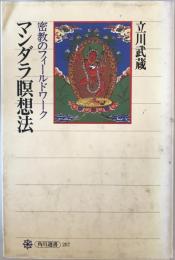 立川武蔵
マンダラ瞑想法
密教のフィールドワーク
角川選書 287